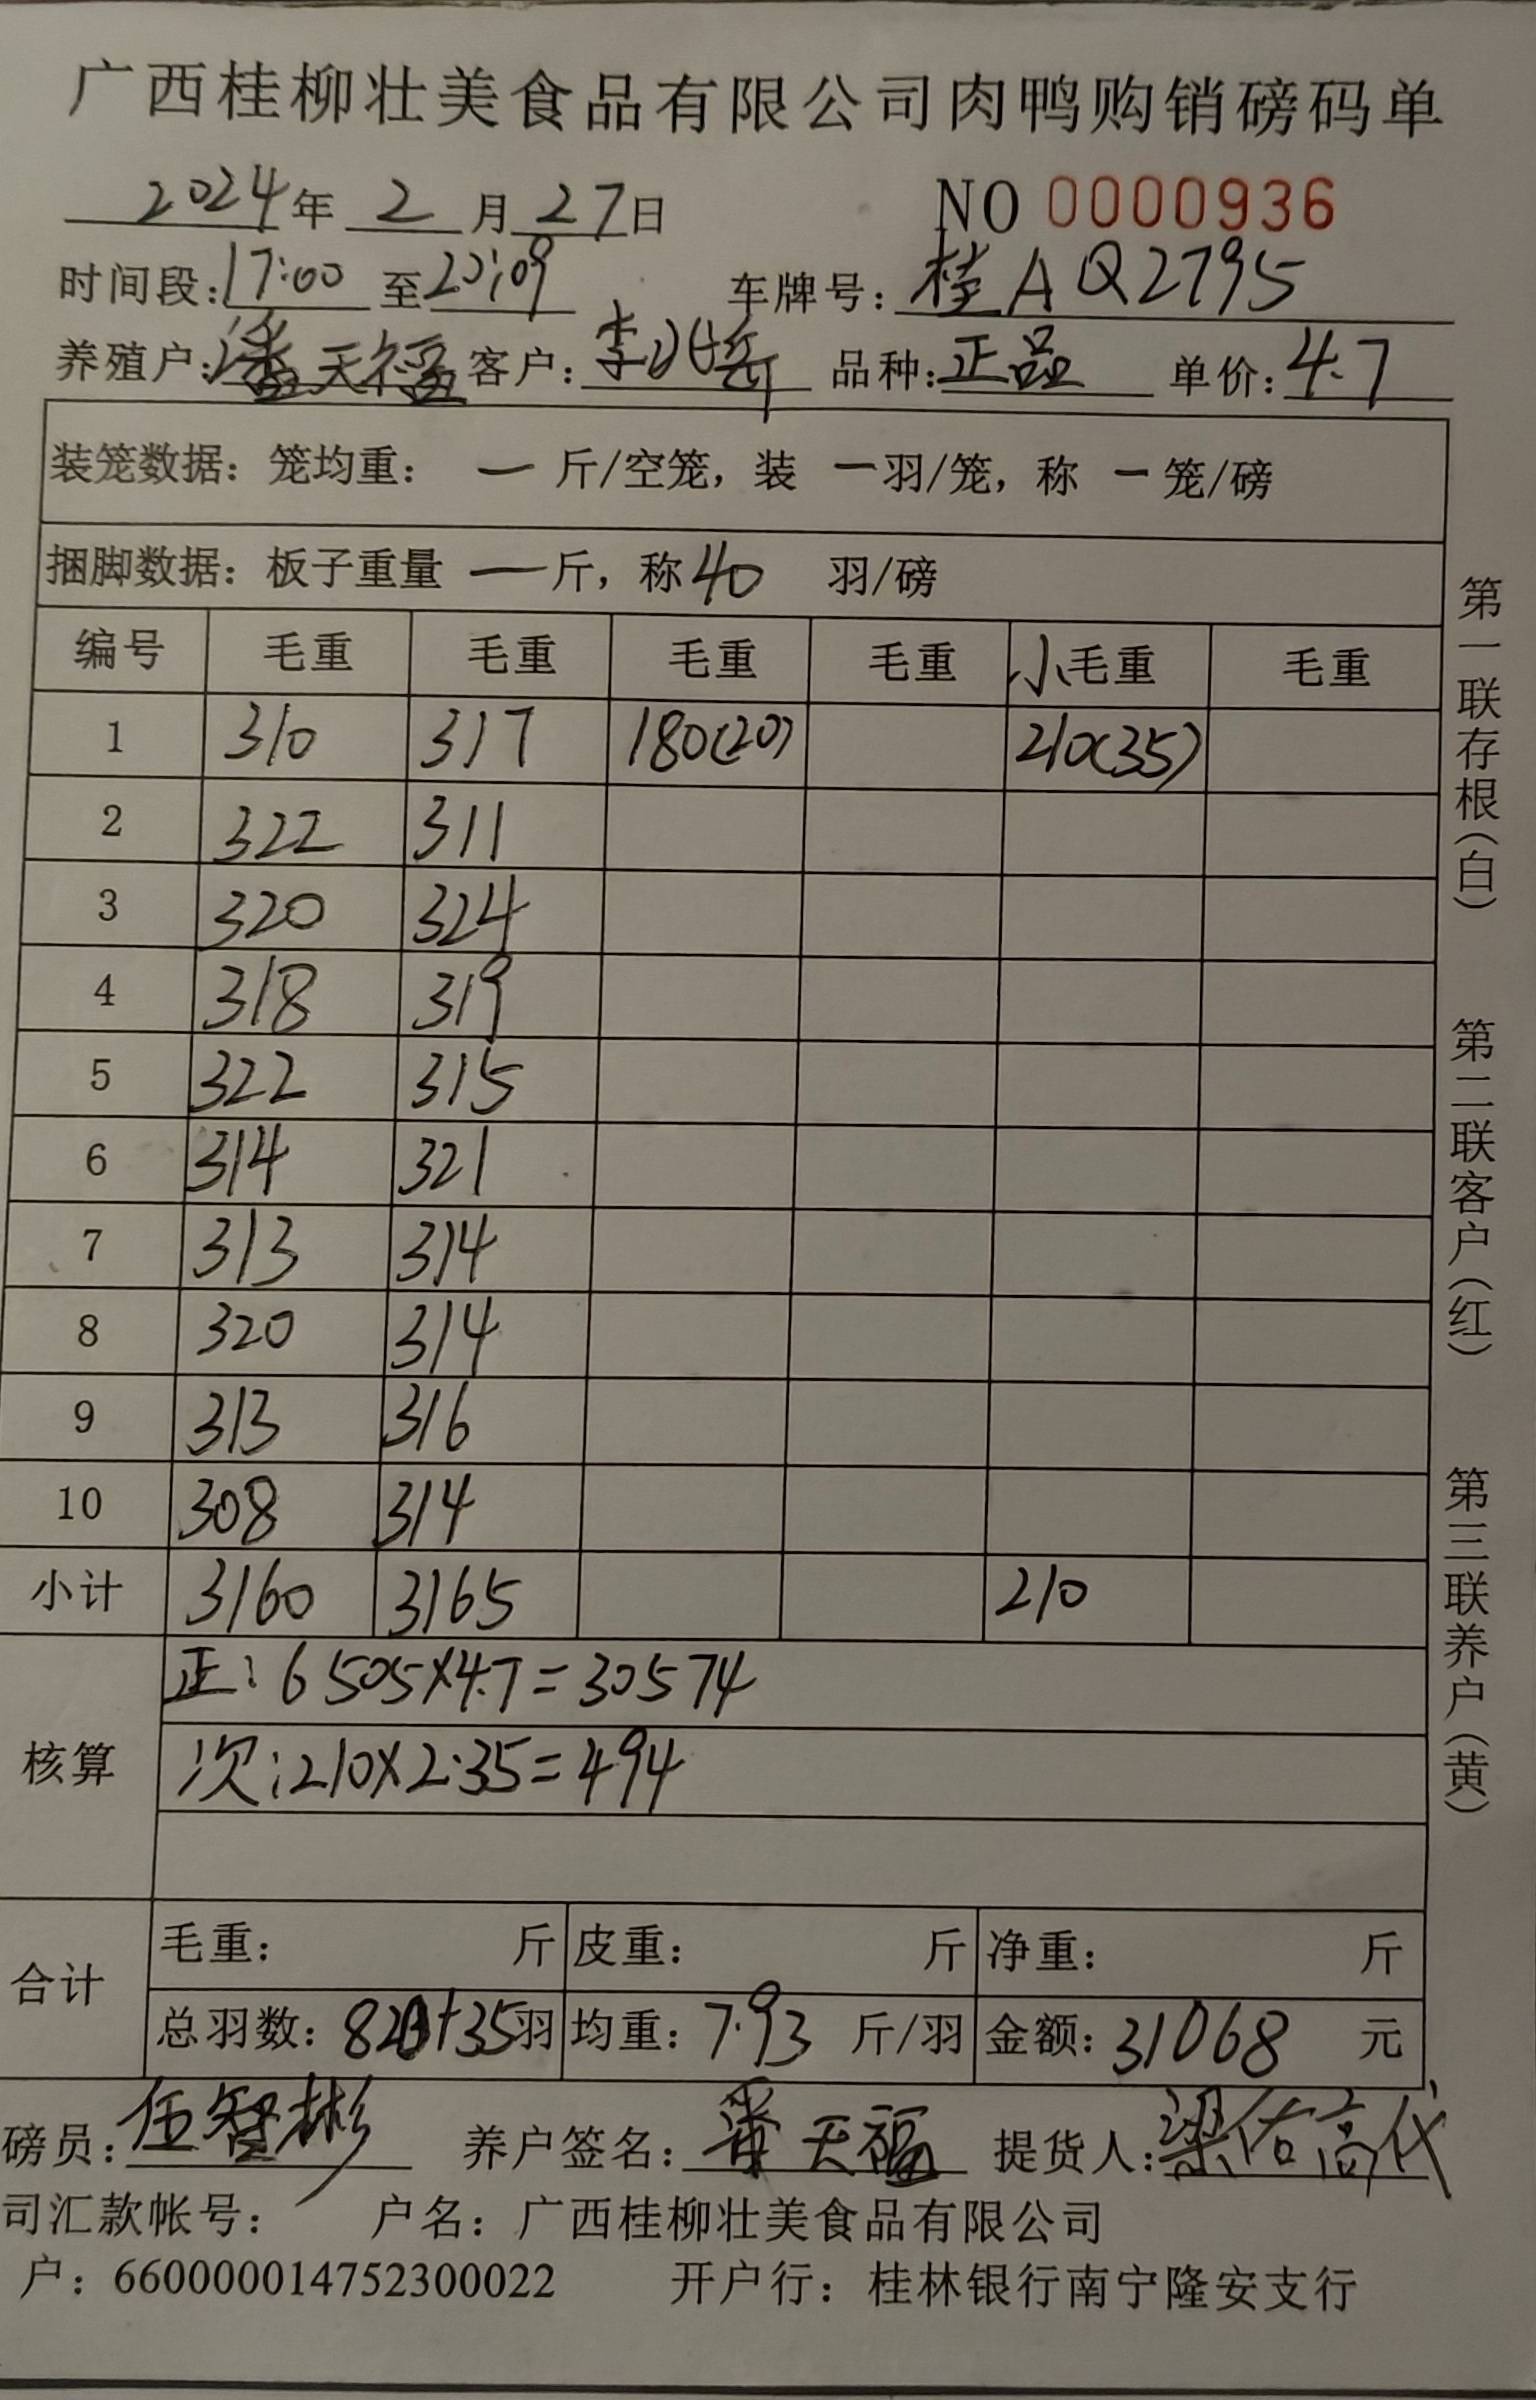 广西桂柳壮美食品有限公司肉鸭购销磅码单
2024年 2 月 27日 NO 0000936
时间段:17:00 至20:09 车牌号: 桂AQ2795
养殖户:潘天福 客户: 李 品种:正品 单价:4.7
装笼数据: 笼均重: 一 斤/空笼, 装 一羽/笼, 称 一笼/磅
捆脚数据: 板子重量 一斤, 称40 羽/磅
编号 毛重 毛重 毛重 毛重 小毛重 毛重
1 310 317 180(20) 210(35)
2 322 311
3 320 324
4 318 319
5 322 315
6 314 321
7 313 314
8 320 314
9 313 316
10 308 314
小计 3160 3165 210
核算 正:6505×4.7=30574
次:210×2.35=494
合计 毛重: 斤 皮重: 斤 净重: 斤
总羽数:820+35羽 均重:7.93 斤/羽 金额:31068 元
磅员:伍智彬 养户签名:潘天福 提货人:梁佑高代
司汇款帐号: 户名:广西桂柳壮美食品有限公司
户:660000014752300022 开户行:桂林银行南宁隆安支行
第一联存根(白) 第二联客户(红) 第三联养户(黄)